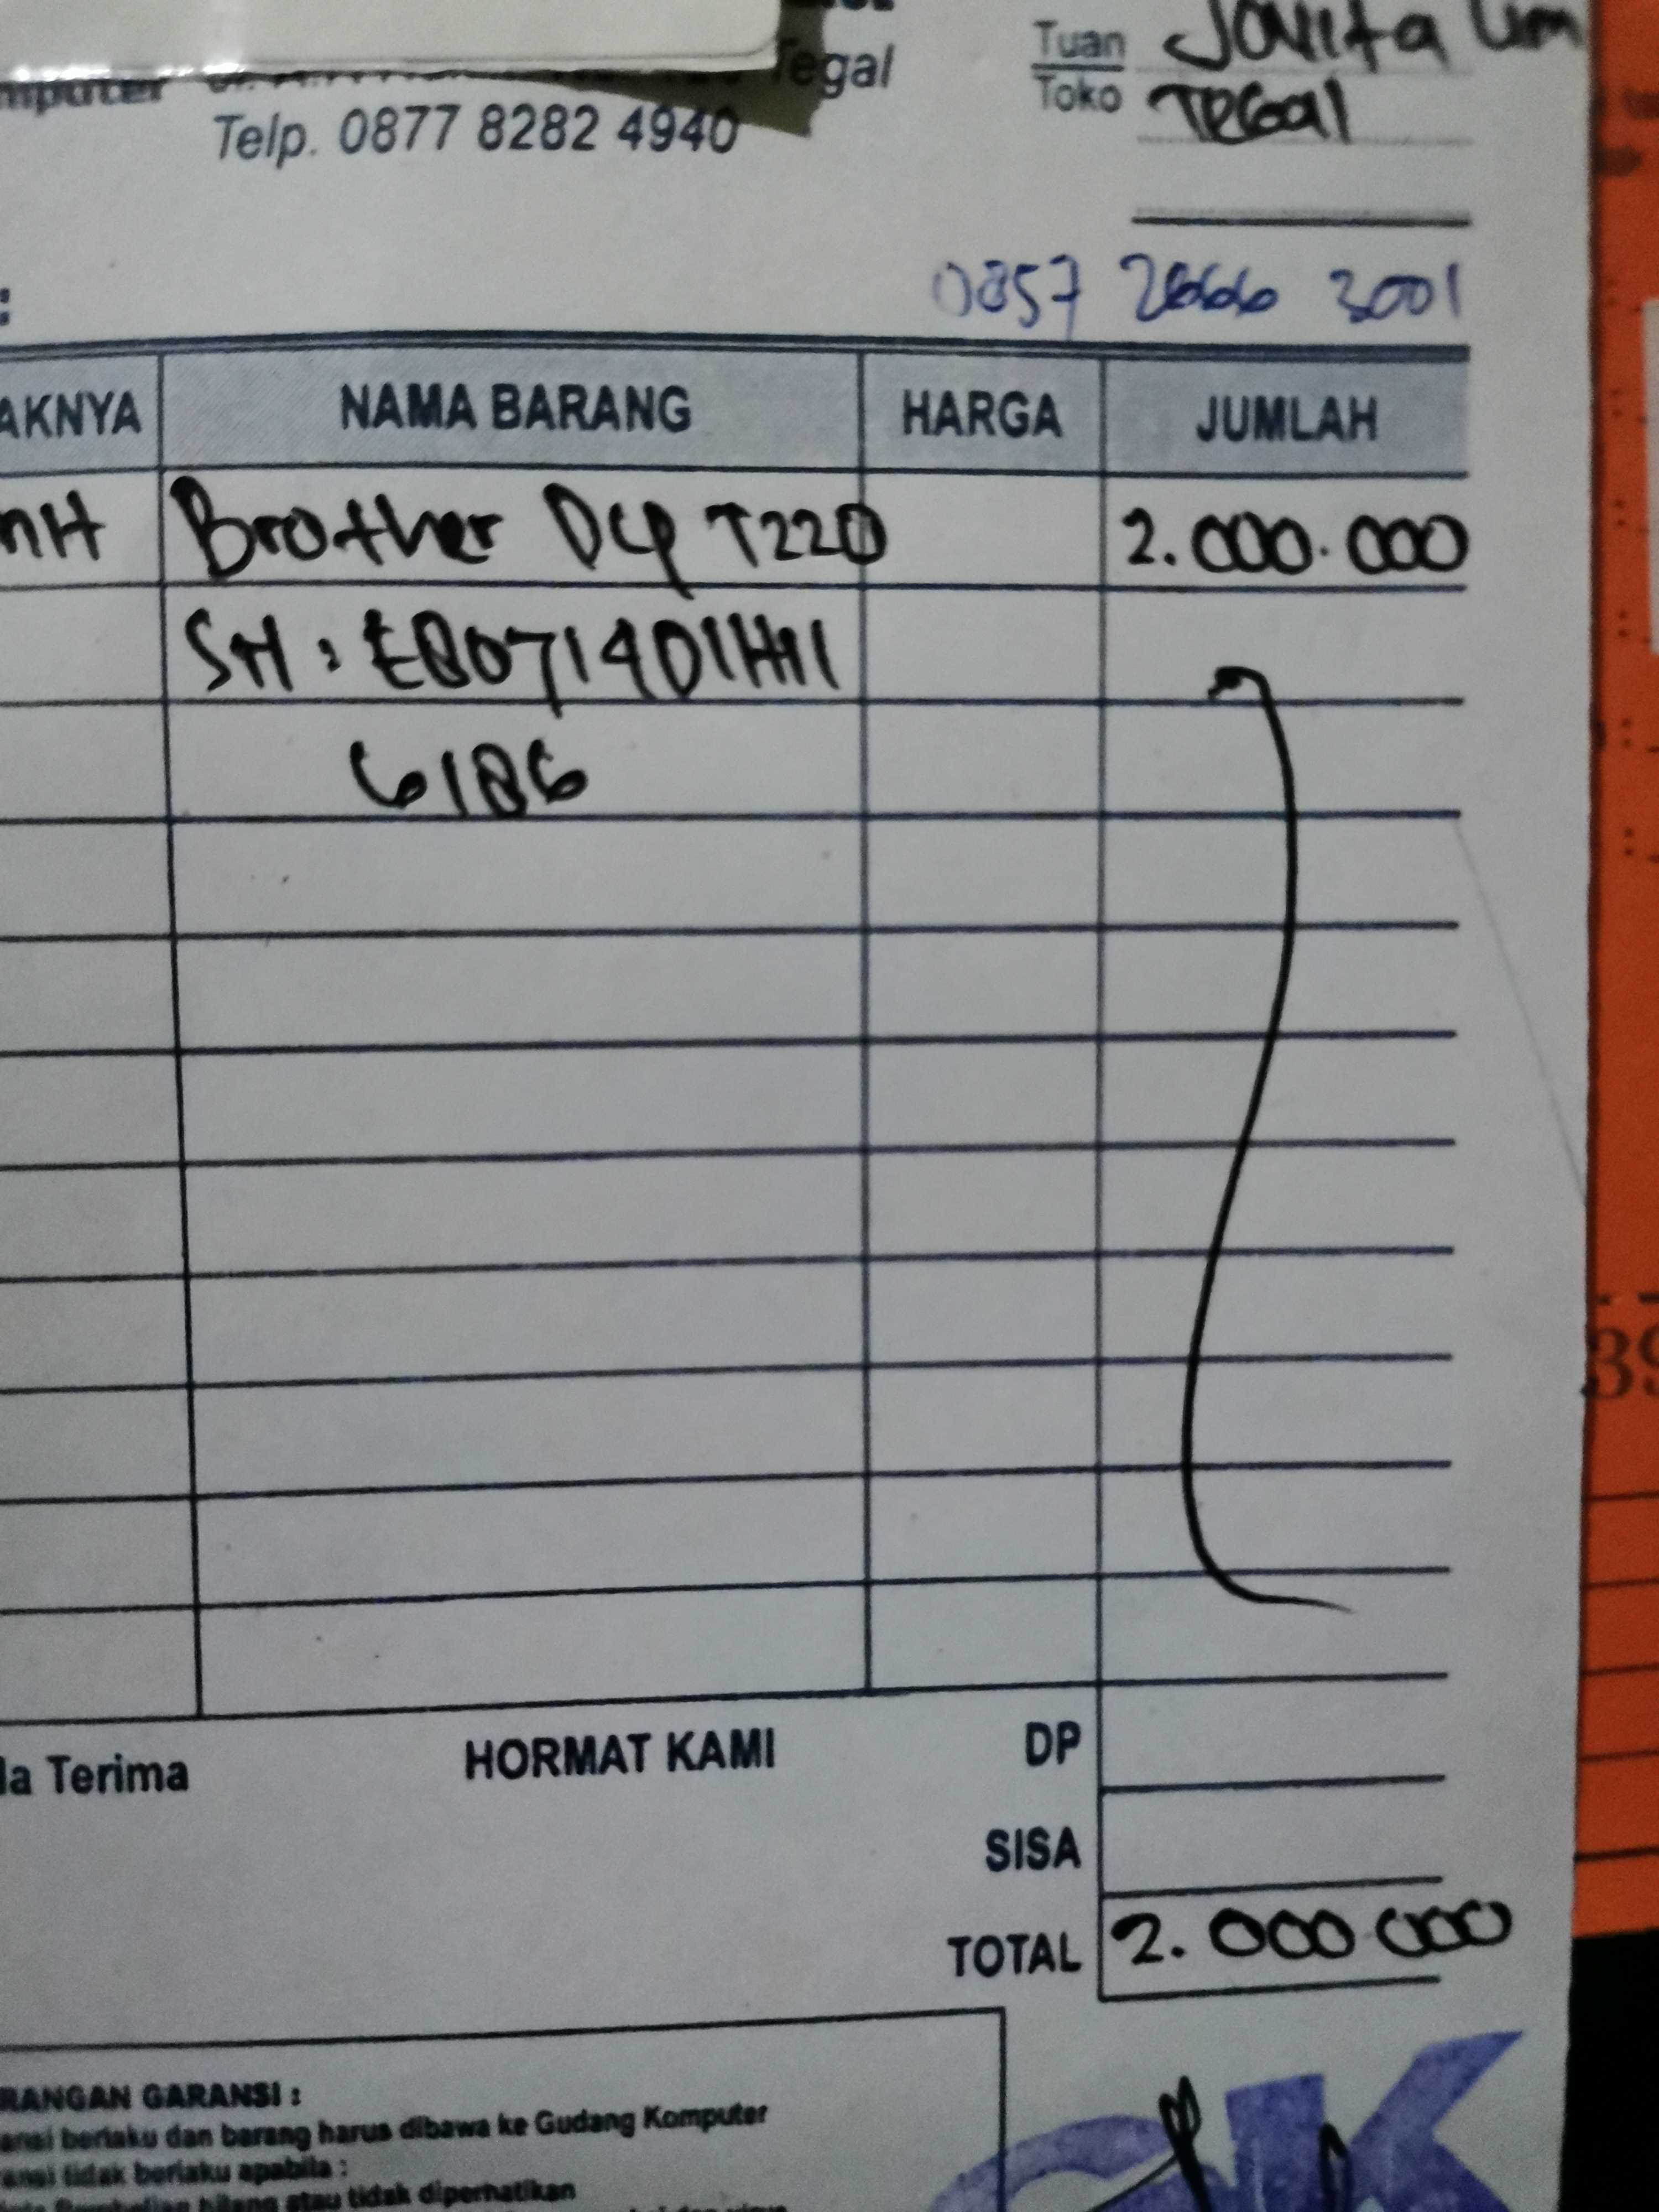 Tegal
Telp. 0877 8282 4940
Tuan Jovita Lim
Toko Tegal
0857 2666 3001
AKNYA NAMA BARANG HARGA JUMLAH
nH Brother DCP T220 2.000.000
SN : E80714D1HH1
6186
la Terima HORMAT KAMI DP
SISA
TOTAL 2.000 000
RANGAN GARANSI :
ansi berlaku dan barang harus dibawa ke Gudang Komputer
ansi tidak berlaku apabila :
hilang atau tidak diperhatikan